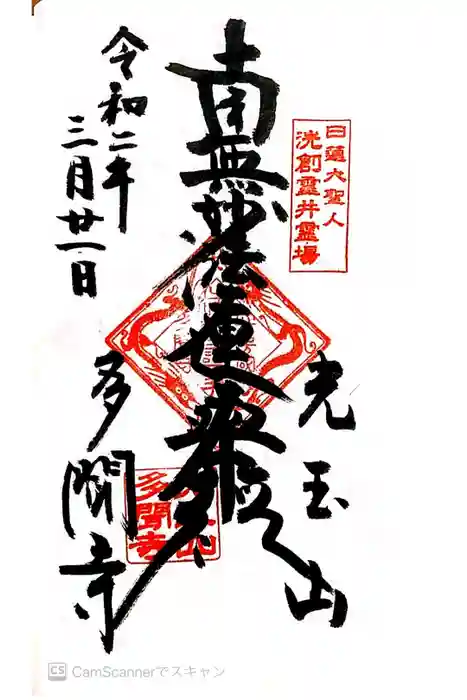 日蓮大聖人
洗創霊井霊場
光玉山
南無妙法蓮華経
令和二年
三月廿一日
多聞寺
多聞寺
CS CamScannerでスキャン